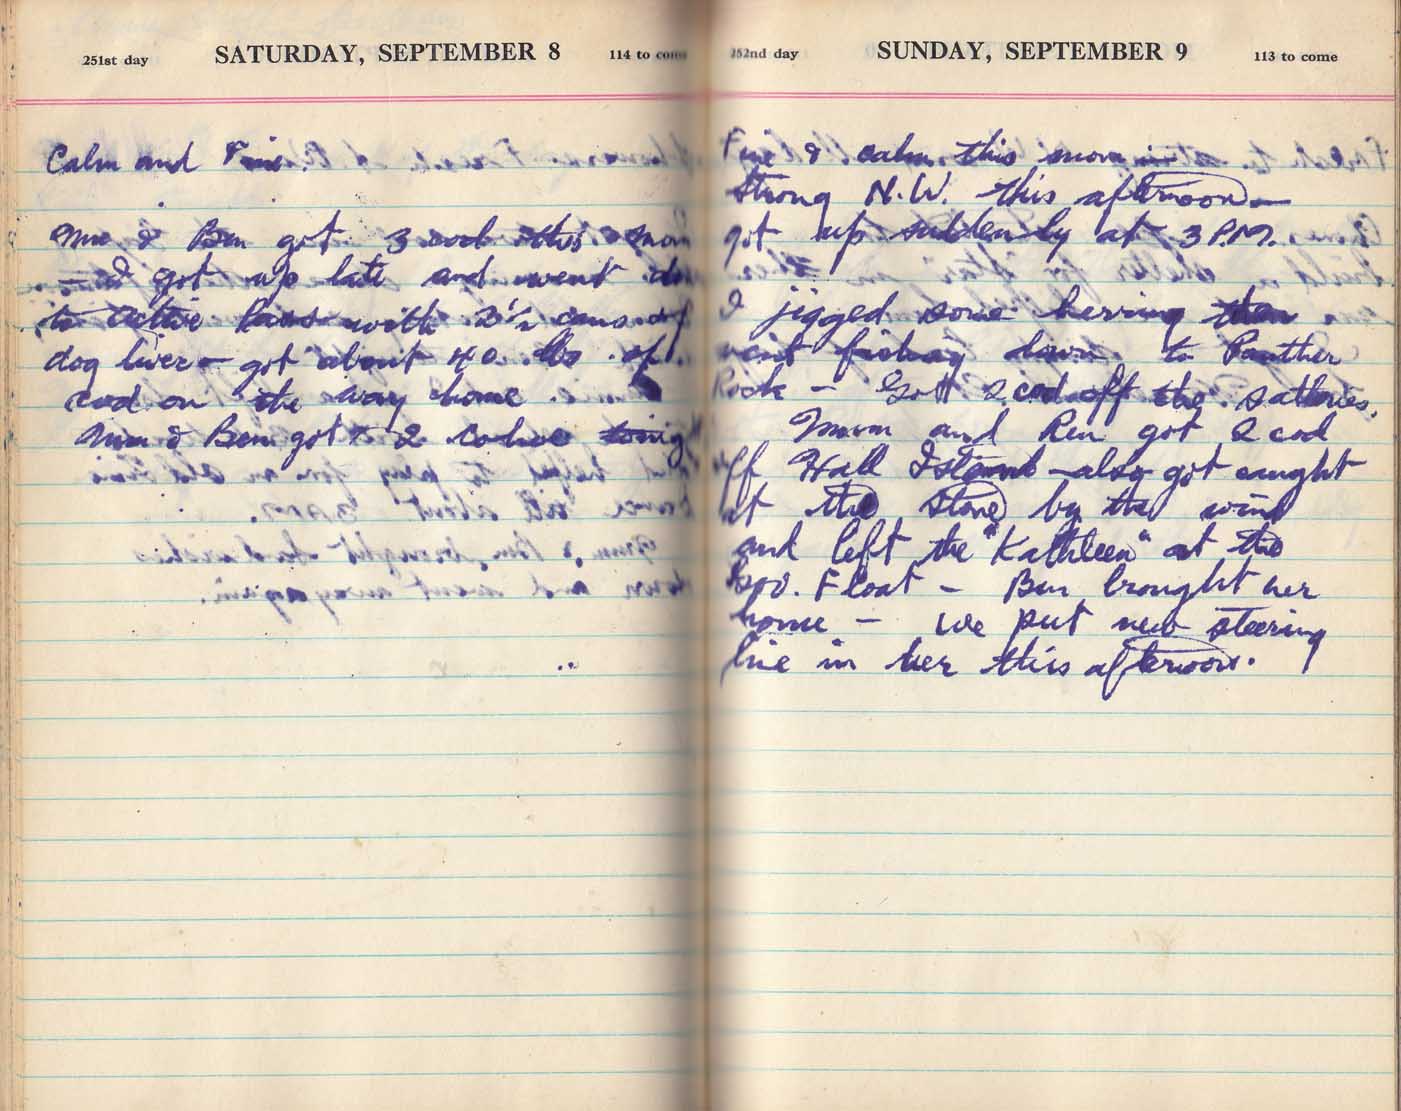 251st day SATURDAY, SEPTEMBER 8 114 to come
Calm and Fine.
Mum & Ben got 3 cod this morn
I got up late and went down
to Active Pass with 2½ cans of
dog liver – got about 40 lbs. of
cod on the way home.
Mum & Ben got 2 cohoe tonight
252nd day SUNDAY, SEPTEMBER 9 113 to come
Fine & calm this morning
Strong N.W. this afternoon –
got up suddenly at 3 P.M.
I jigged some herring then
went fishing down to Panther
Rock – Got 2 cod off the
Mum and Ben got 2 cod
off Hall Island – also got caught
at the store by the wind
and left the "Kathleen" at the
Gov. Float – Ben brought her
home – we put new steering
line in her this afternoon.